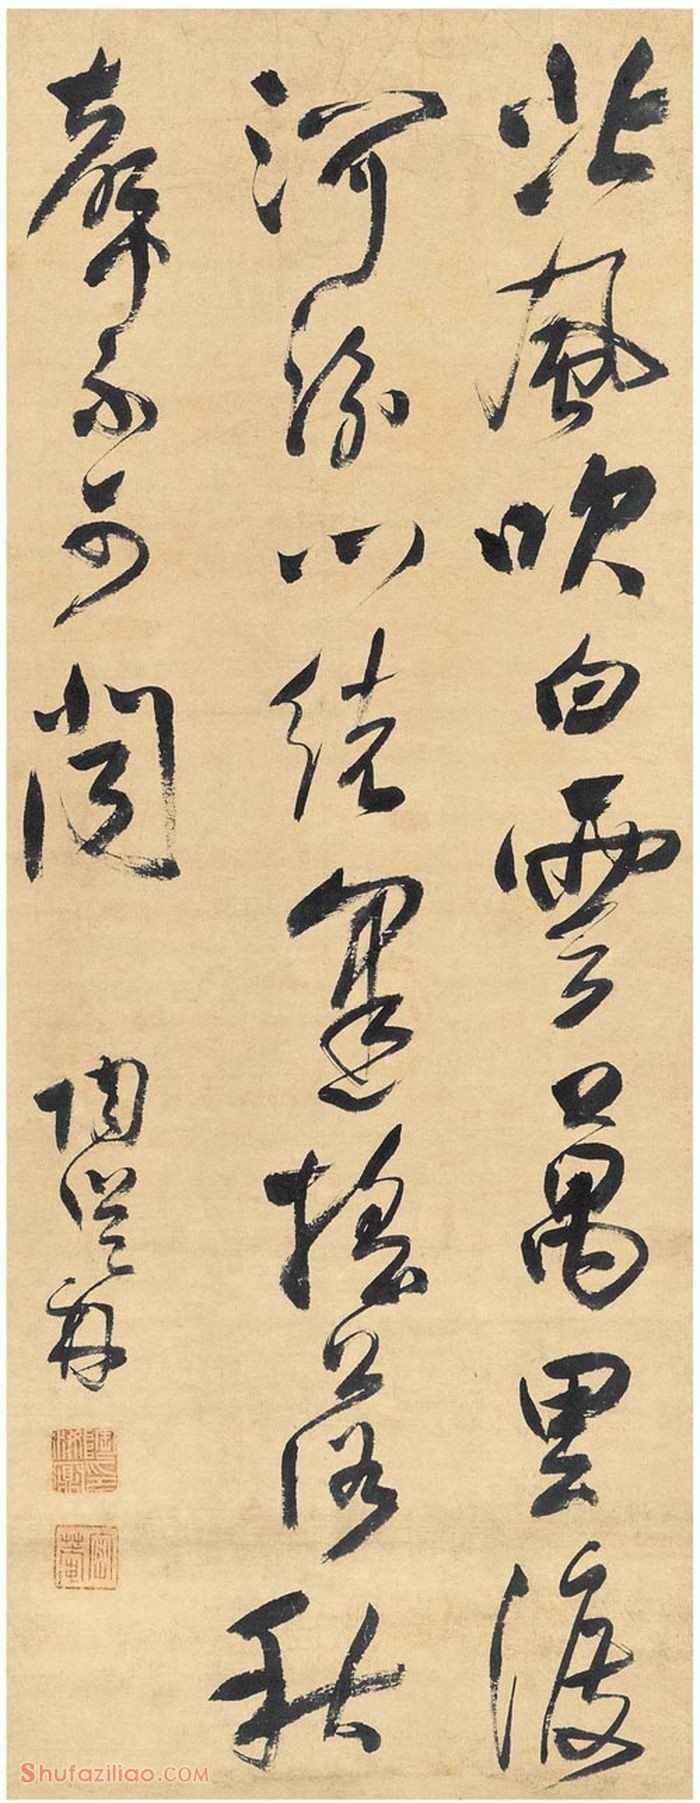 北風吹白雲萬里渡
河汾心緒逢搖落秋
聲不可聞
陶汝鼐
Shufaziliao.COM